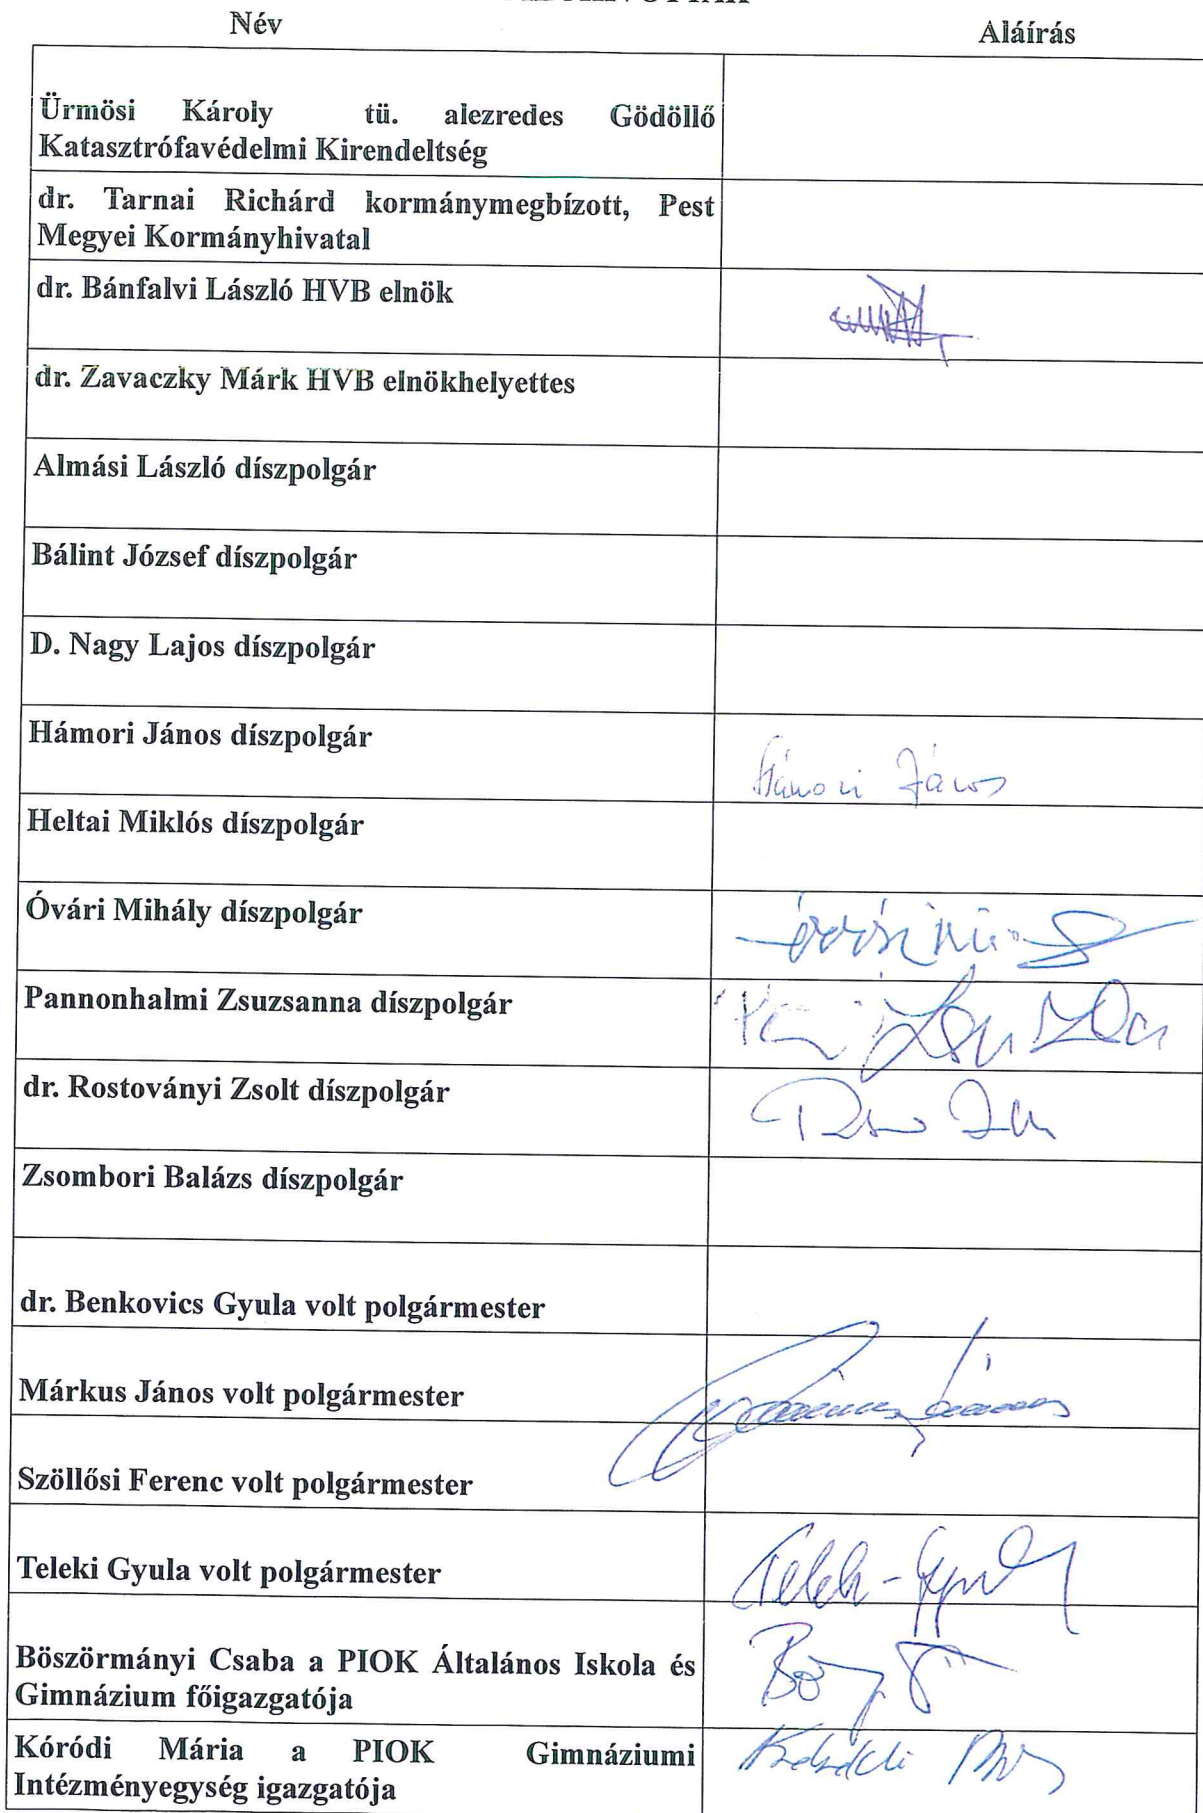 Név
Aláírás
Ürmösi Károly tü. alezredes Gödöllő
Katasztrófavédelmi Kirendeltség
dr. Tarnai Richárd kormánymegbízott, Pest
Megyei Kormányhivatal
dr. Bánfalvi László HVB elnök
dr. Zavaczky Márk HVB elnökhelyettes
Almási László díszpolgár
Bálint József díszpolgár
D. Nagy Lajos díszpolgár
Hámori János díszpolgár
Hámori János
Heltai Miklós díszpolgár
Óvári Mihály díszpolgár
Pannonhalmi Zsuzsanna díszpolgár
dr. Rostoványi Zsolt díszpolgár
Zsombori Balázs díszpolgár
dr. Benkovics Gyula volt polgármester
Márkus János volt polgármester
Szöllősi Ferenc volt polgármester
Teleki Gyula volt polgármester
Böszörményi Csaba a PIOK Általános Iskola és
Gimnázium főigazgatója
Kóródi Mária a PIOK Gimnáziumi
Intézményegység igazgatója